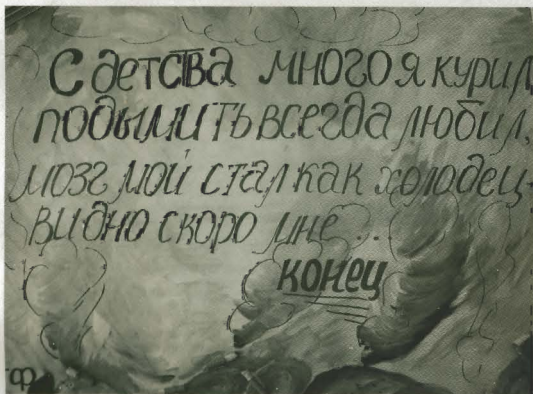 С детства много я курил
подымить всегда любил,
мозг мой стал как холодец-
видно скоро мне ...
конец
ф